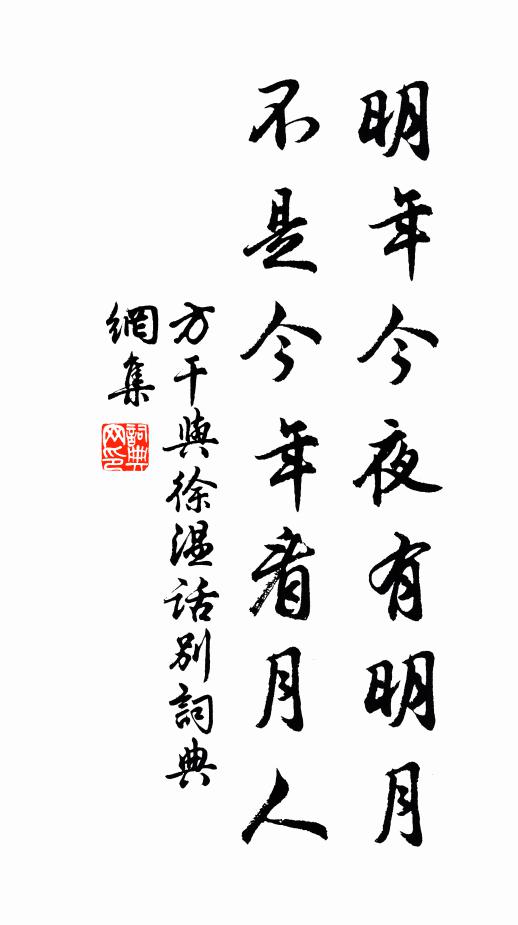 明年今夜有明月
不是今年看月人
方干與徐温话别詞典
網集
詞典
网印